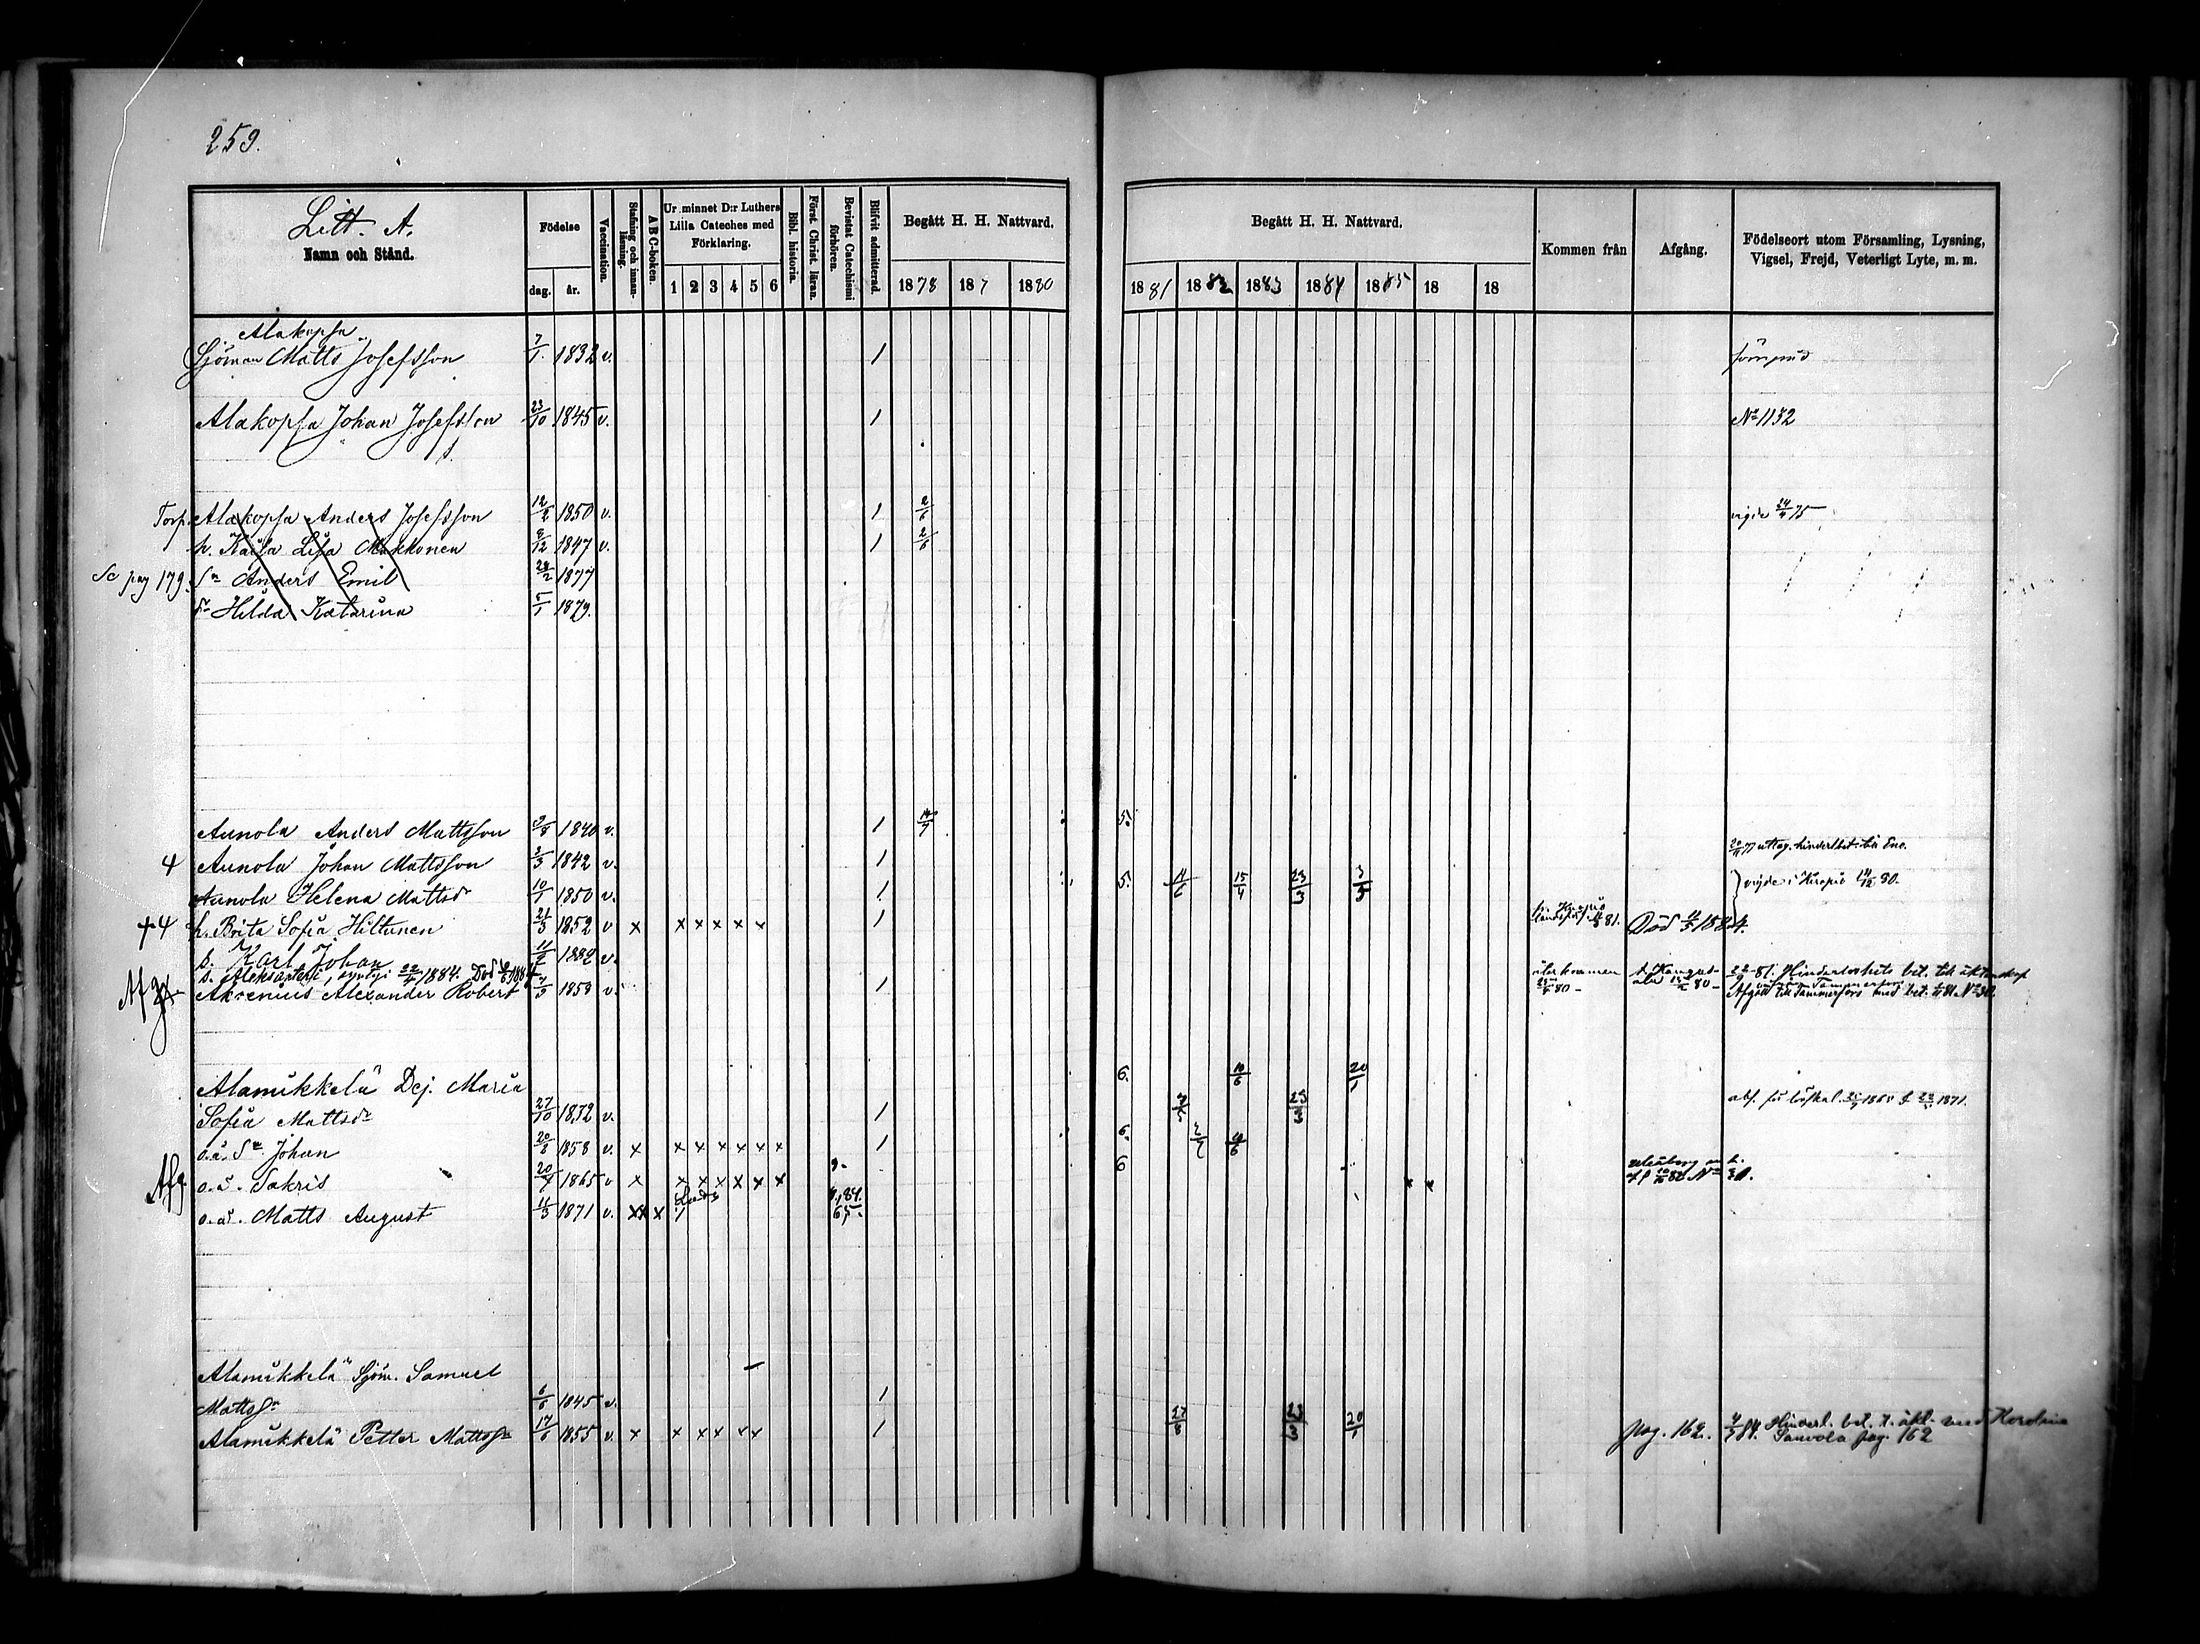 259.
Litt. A.
Namn och Stånd.
Födelse
dag. år.
Vaccination.
Stafning och innanläsning.
ABC-boken.
Ur minnet D:r Luthers Lilla Cateches med Förklaring.
1 2 3 4 5 6
Bibl. historia.
Först. Christ. läran.
Bevistat Catechismi förhören.
Blifvit admitterad.
Begått H. H. Nattvard.
1878 187 1880
Begått H. H. Nattvard.
1881 1882 1883 1884 1885 18 18
Kommen från
Afgång.
Födelseort utom Församling, Lysning, Vigsel, Frejd, Veterligt Lyte, m. m.
Alakopsa
Sjöman Matts Josefsson 7/1 1832 v. 1
Alakopsa Johan Josefsson 23/10 1845 v. 1 No 1132
Torp. Alakopsa Anders Josefsson 12/2 1850 v. 1 2/6 vigde 24/4 75
h. Kaisa Lisa Makkonen 9/12 1847 v. 1 2/6
Se pag 179. Sn Anders Emil 28/2 1877
dr Hilda Katarina 5/1 1879.
Aunola Anders Mattsson 3/8 1840 v. 1 14/7 5.
4 Aunola Johan Mattsson 2/3 1842 v. 1
Aunola Helena Mattsdr 10/1 1850 v. 1 5. 11/6 15/4 23/3 3/5 vigde i Kuopio 14/12 80.
h. Brita Sofia Hiltunen 21/3 1852 v x x x x x x 1 Död 11/5 1884.
s. Karl Johan 11/2 1882 v.
s. Aleksanteri, syntyi 22/4 1884. Död
Afg. Aksenius Alexander Robert 7/9 1859 v. 1 återkommen 80 - 80 - Hinderlöshets bet. till äktenskap
Afgått till Tammerfors med bet. 81 No 30.
Alamikkelä Dej. Maria 6. 10/6 20/1
Sofia Mattsdr 27/10 1832 v. 1 23/3
o.ä. Sn Johan 20/2 1858 v. x x x x x x x 1 6.
Afg. o.ä. Sakris 20/7 1865 v x x x x x x x 6 Uleåborg
o.ä. Matts August 11/3 1871 v. x x x
Alamikkelä Sjöm. Samuel
Mattsn 6/6 1845 v. 1
Alamikkelä Petter Mattsn 17/6 1855 v. x x x x x x 1 27/8 23/3 20/1 pag. 162. 84. Hinderl. bet. t. äkt. med
Sauvola pag. 162